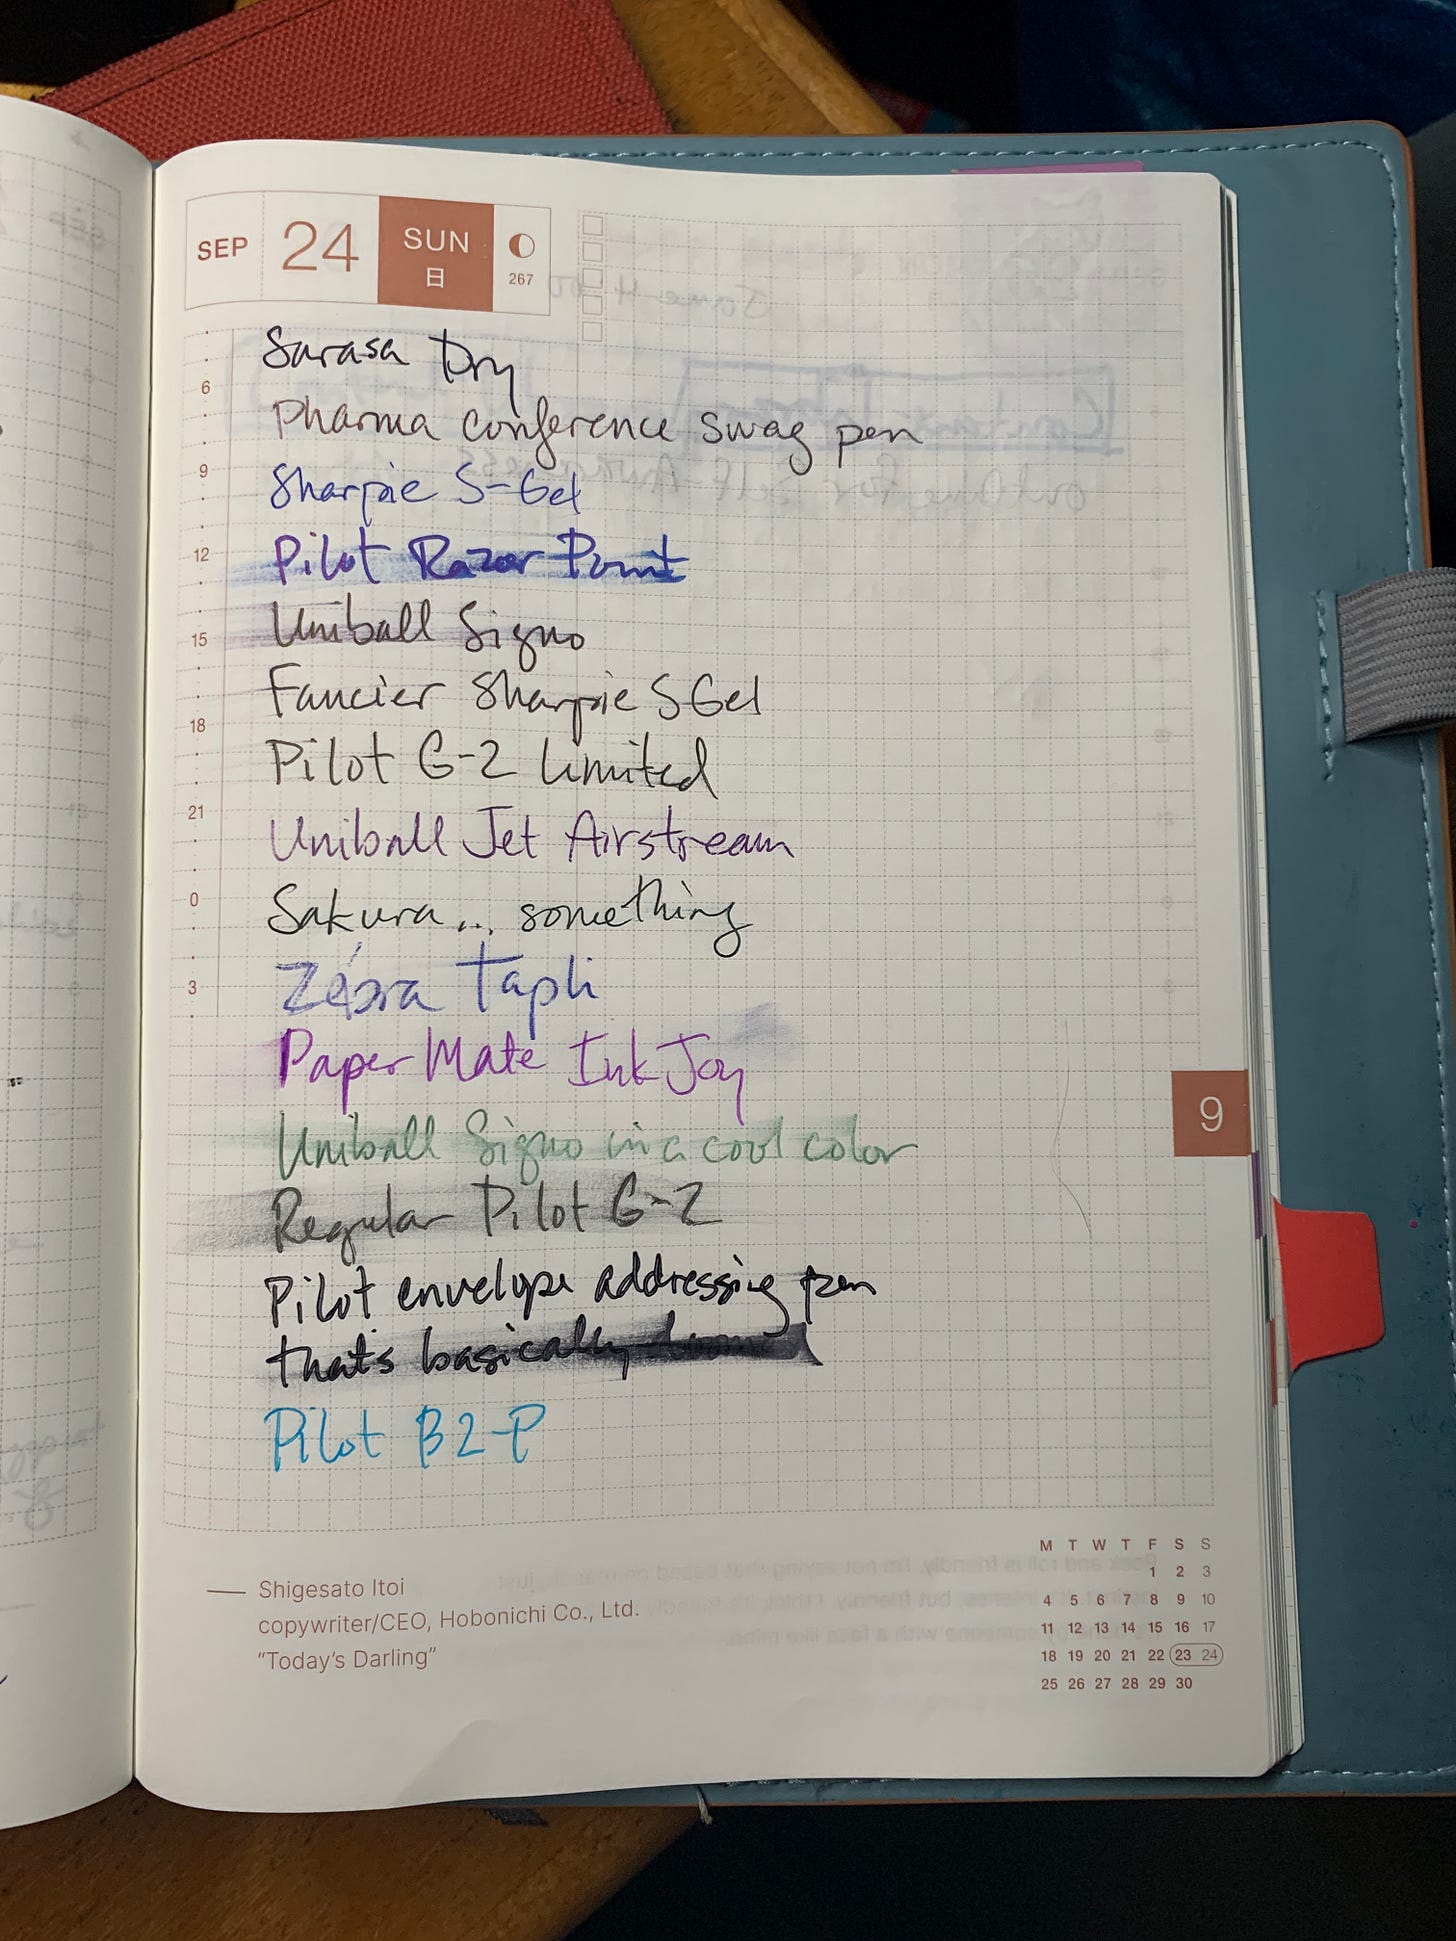 SEP 24 SUN
日
267
Sarasa Dry
6
Pharma conference swag pen
9
Sharpie S-Gel
12
Pilot Razor Point
15
Uniball Signo
Fancier Sharpie S Gel
18
Pilot G-2 Limited
21
Uniball Jet Airstream
0
Sakura... something
3
Zebra Tapli
PaperMate InkJoy
9
Uniball Signo in a cool color
Regular Pilot G-2
Pilot envelope addressing pen
that's basically
Pilot B2-P
— Shigesato Itoi
copywriter/CEO, Hobonichi Co., Ltd.
“Today's Darling”
M T W T F S S
1 2 3
4 5 6 7 8 9 10
11 12 13 14 15 16 17
18 19 20 21 22 23 24
25 26 27 28 29 30